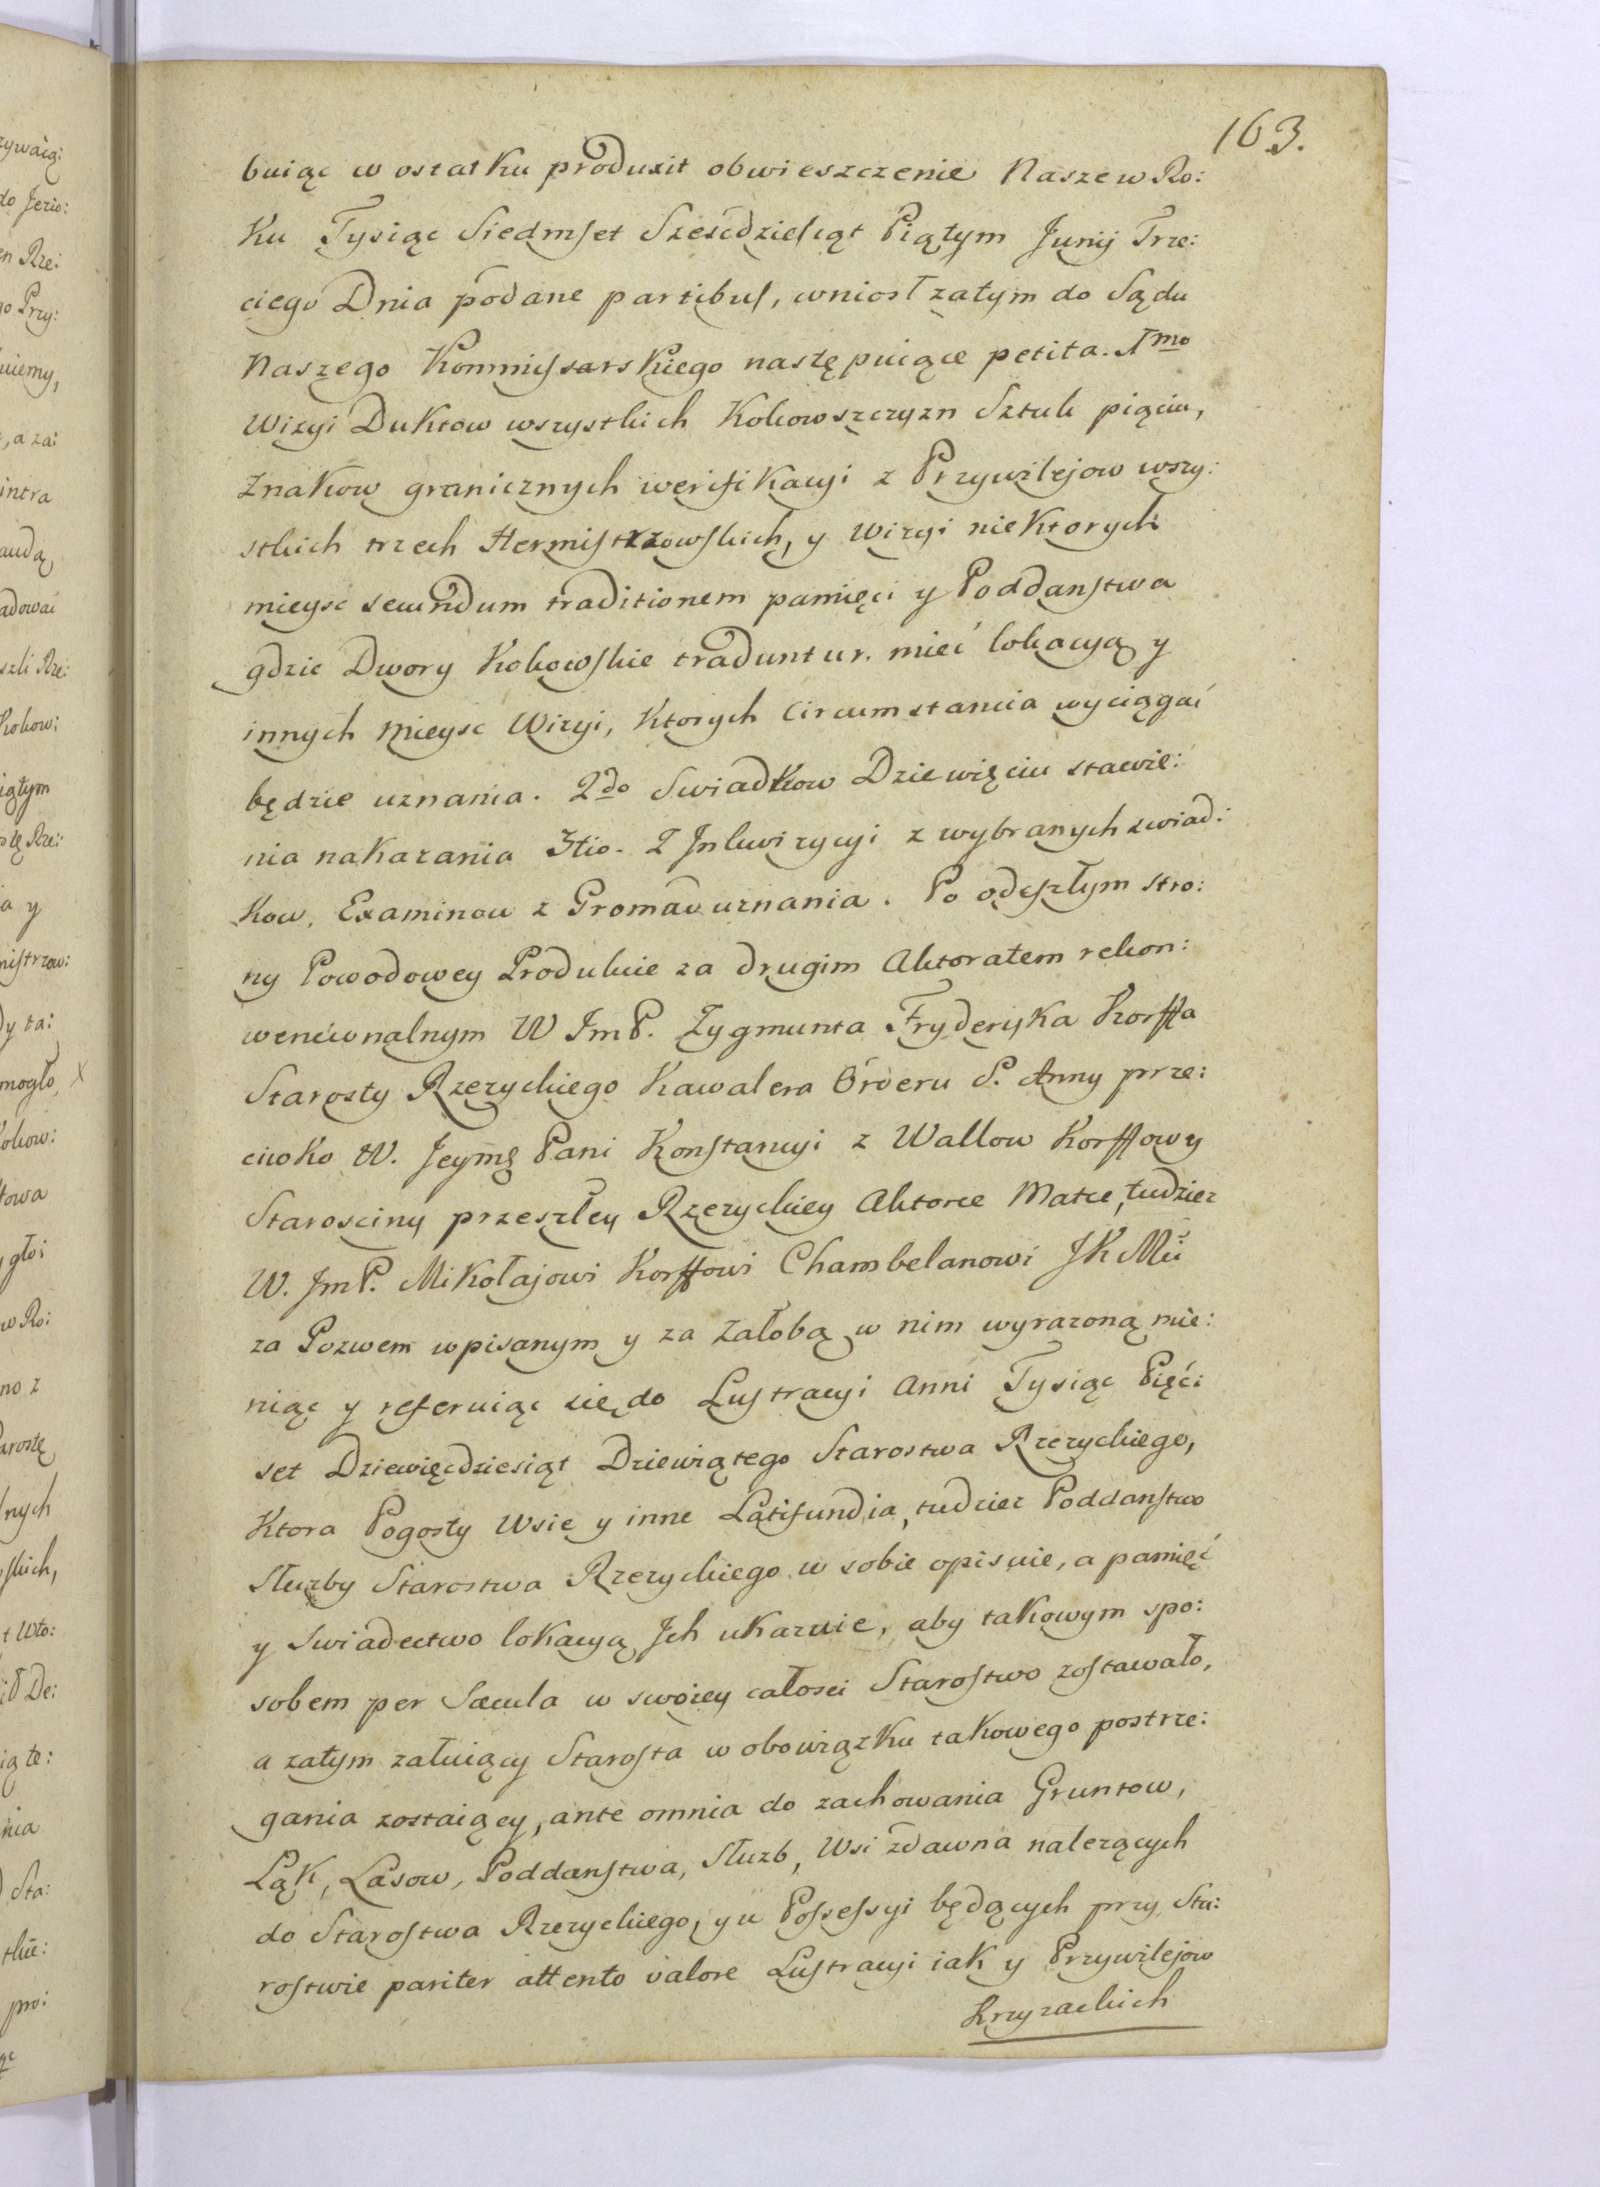 163.
buiąc w ostatku produxit obwieszczenie Nasze w Ro:
ku Tysiąc Siedmset Szescdziesiąt Piątym Junij Trze:
ciego Dnia podane partibus, wniosł zatym do Sądu
Naszego Kommissarskiego następuiące petita. 1mo
Wizyi Duktow wszystkich Kokowszczyzn Sztuk pięciu,
Znakow granicznych weryfikacyi z Przywilejow wszy:
stkich trzech Hermistrzowskich, y Wizyi niektorych
mieysc secundum traditionem pamięci y Poddanstwa
gdzie Dwory Kokowskie traduntur. mieć lokacyą y
innych mieysc Wizyi, ktorych circumstancia wyciągać
będzie uznania. 2do Swiadkow Dziewięciu stawie:
nia nakazania 3tio. Z Inkwizycyi z wybranych swiad:
kow, Examinow z Gromad uznania. Po odeszłym stro:
ny Powodowey Produkcie za drugim Aktoratem rekon:
wencionalnym W ImP. Zygmunta Fryderyka Korffa
Starosty Rzezyckiego Kawalera Orderu S. Anny prze:
ciwko W. Jeymę Pani Konstancyi z Wallow Korffowy
Starosciny przeszłey Rzezyckiey Aktorce Matce, tudziez
W. JmP. Mikołajowi Korffowi Chambelanowi JK Mći
za Pozwem wpisanym y za Załobą w nim wyrazoną mie:
niąc y referuiąc się do Lustracyi Anni Tysiąc Pięć:
set Dziewięcdziesiąt Dziewiątego Starostwa Rzezyckiego,
Ktora Pogosty Wsie y inne Latifundia, tudziez Poddanstwo
Służby Starostwa Rzezyckiego w sobie opisuie, a pamięć
y Swiadectwo lokacyą Jch ukazuie, aby takowym spo:
sobem per Sæcula w swoiey całosci Starostwo zostawało,
a zatym załuiący Starosta w obowiązku takowego postrze:
gania zostaiący, ante omnia do zachowania Gruntow,
Łąk, Lasow, Poddanstwa, Służb, Wsi zdawna nalezących
do Starostwa Rzezyckiego, y u Possessyi będących przy Sta:
rostwie pariter attento valore Lustracyi iak y Przywilejow
Krzyzackich